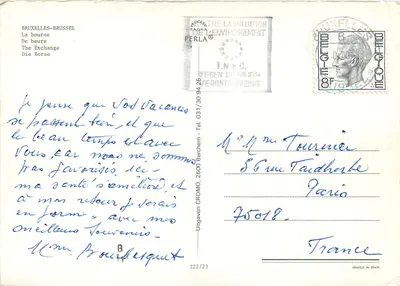 BRUXELLES-BRUSSEL
La bourse
De beurs
The Exchange
Die Borse
PERLA
BRUXELLES
BELGIE BELGIQUE
8F
Je pense que vos vacances
se passent bien, et que
le beau temps est avec
vous, car nous ne sommes
pas favorisés,
ma santé s'améliore, et
à mon retour je serais
en forme, avec mes
meilleurs souvenirs.
Mme
Uitgaven CROMO, 2600 Berchem - Tel. 031/30 94 26
M. Mme Tournier
56 rue
Paris
75018.
France
222/23
B